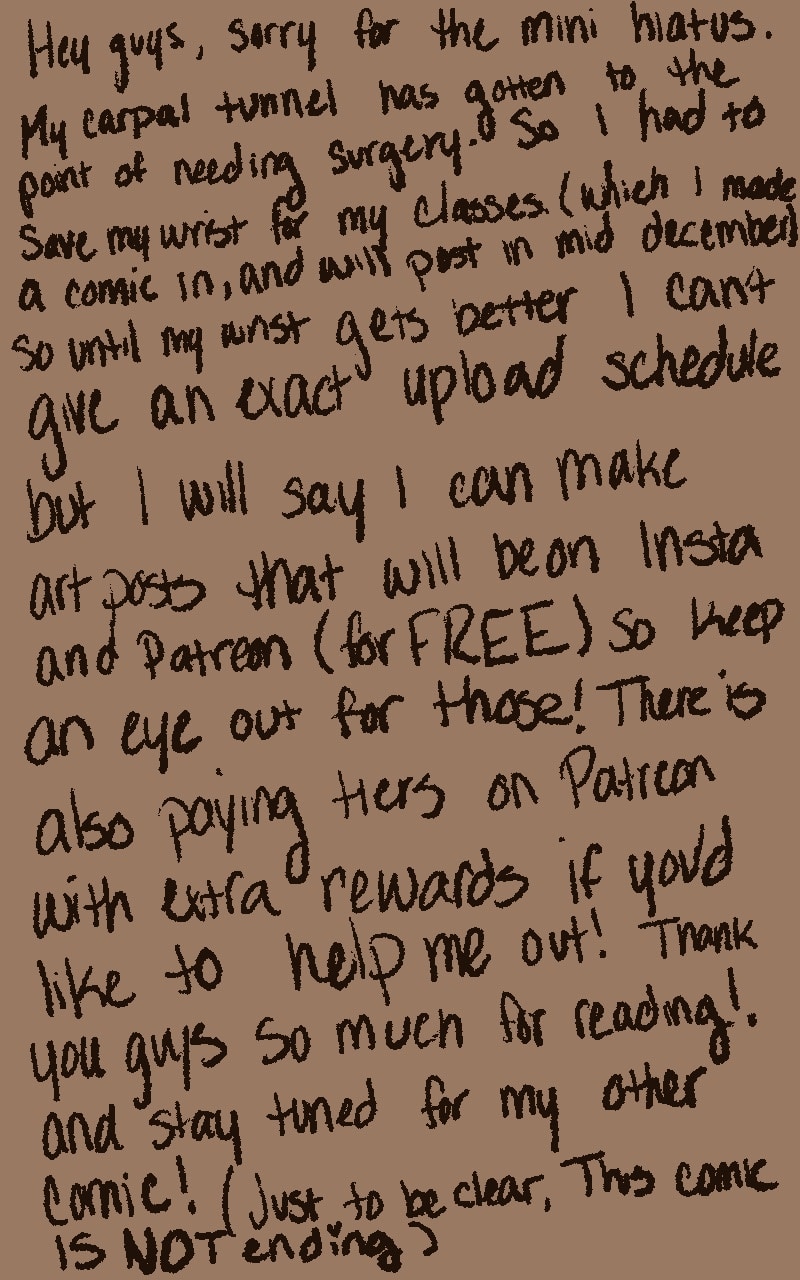 Hey guys, sorry for the mini hiatus.
My carpal tunnel has gotten to the
point of needing surgery. So I had to
save my wrist for my classes (which I made
a comic in, and will post in mid december)
So until my wrist gets better I can't
give an exact upload schedule
but I will say I can make
art posts that will be on Insta
and Patreon (for FREE) so keep
an eye out for those! There is
also paying tiers on Patreon
with extra rewards if you'd
like to help me out! Thank
you guys so much for reading!
and stay tuned for my other
comic! (Just to be clear, This comic
is NOT ending)